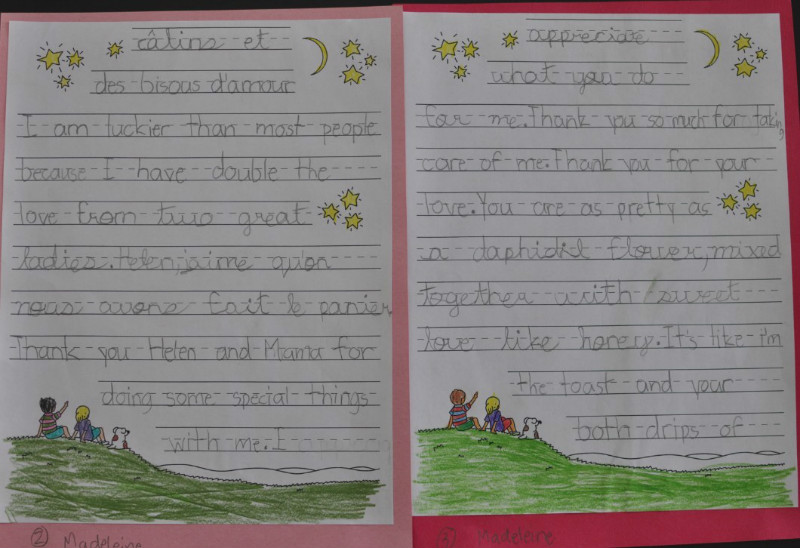 câlins et
des bisous d'amour
I am luckier than most people
because I have double the
love from two great
ladies. Helen, j'aime qu'on
nous avons fait le panier
Thank you Helen and Mama for
doing some special things
with me. I
② Madeleine
appreciate
what you do
for me. Thank you so much for taking
care of me. Thank you for your
love. You are as pretty as
a daphidil flower, mixed
together with sweet
love like honey. It's like i'm
the toast and your
both drips of
Madeleine